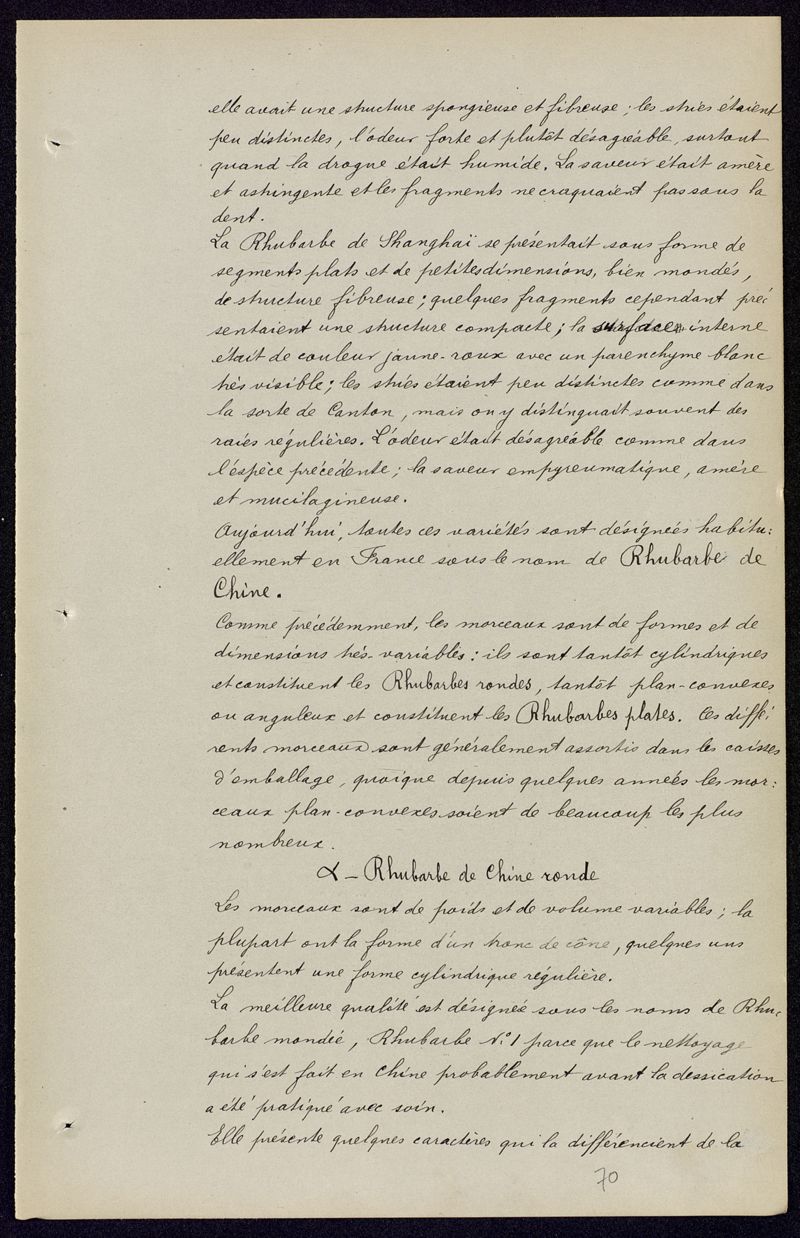 elle avait une structure spongieuse et fibreuse ; les stries étaient
peu distinctes, l'odeur forte et plutôt désagréable, surtout
quand la drogue était humide. La saveur était amère
et astringente et les fragments ne craquaient pas sous la
dent.
La Rhubarbe de Shanghaï se présentait sous forme de
segments plats et de petites dimensions, bien mondés,
de structure fibreuse ; quelques fragments cependant pré-
sentaient une structure compacte ; la surface interne
était de couleur jaune-roux avec un parenchyme blanc
très visible ; les stries étaient peu distinctes comme dans
la sorte de Canton, mais on y distinguait souvent des
raies régulières. L'odeur était désagréable comme dans
l'espèce précédente ; la saveur empyreumatique, amère
et mucilagineuse.
Aujourd'hui, toutes ces variétés sont désignées habitu:
ellement en France sous le nom de Rhubarbe de
Chine.
Comme précédemment, les morceaux sont de formes et de
dimensions très-variables : ils sont tantôt cylindriques
et constituent les Rhubarbes rondes, tantôt plan-convexes
ou anguleux et constituent les Rhubarbes plates. Ces diffé-
rents morceaux sont généralement assortis dans les caisses
d'emballage, quoique depuis quelques années les mor:
ceaux plan-convexes soient de beaucoup les plus
nombreux.
α - Rhubarbe de Chine ronde
Les morceaux sont de poids et de volume variables ; la
plupart ont la forme d'un tronc de cône, quelques uns
présentent une forme cylindrique régulière.
La meilleure qualité est désignée sous les noms de Rhu-
barbe mondée, Rhubarbe N.° 1 parce que le nettoyage
qui s'est fait en Chine probablement avant la dessication
a été pratiqué avec soin.
Elle présente quelques caractères qui la différencient de la
70